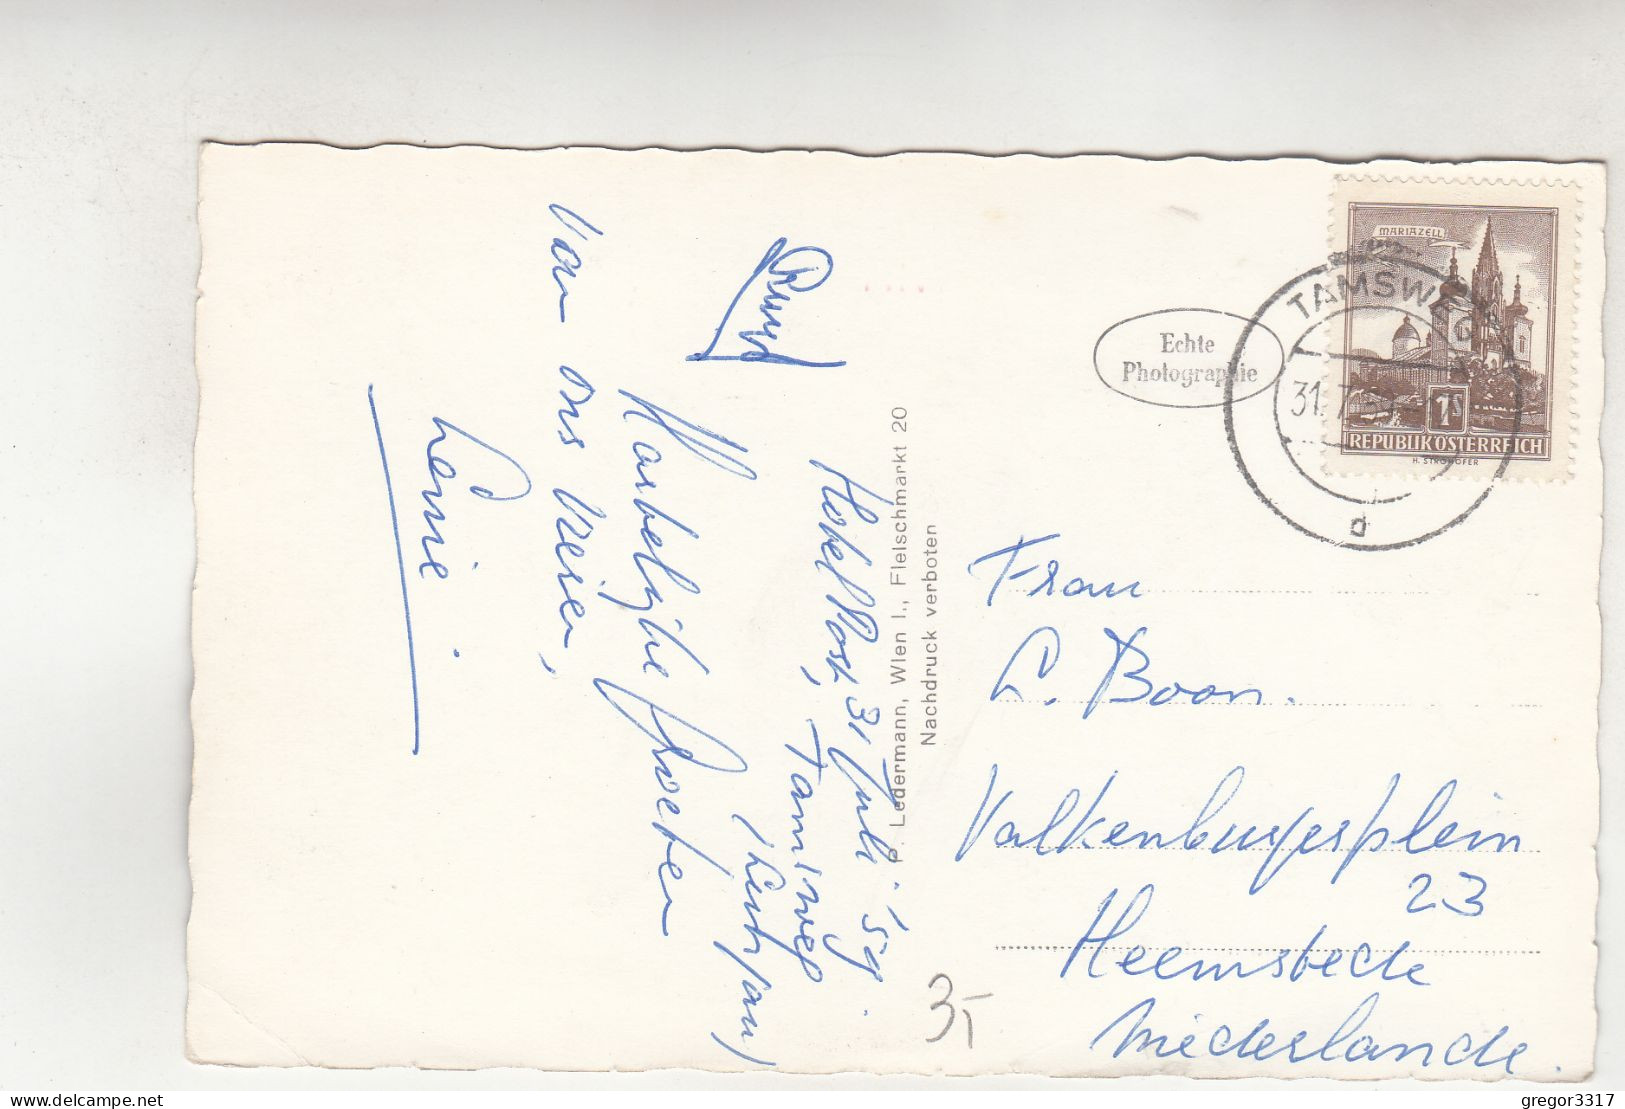 Hotel Post, 31 Juli '59.
Tamsweg
(Lungau)
Hartelijke groeten
van ons vieren,
Ruud
Lenie.
P. Ledermann, Wien I., Fleischmarkt 20
Nachdruck verboten
Echte
Photographie
MARIAZELL
1S
REPUBLIK ÖSTERREICH
H. STROHOFER
TAMSWEG
31.7.59
Frau
L. Boon.
Valkenburgerplein
23
Heemstede
Niederlande.
3,-
www.delcampe.net
gregor3317